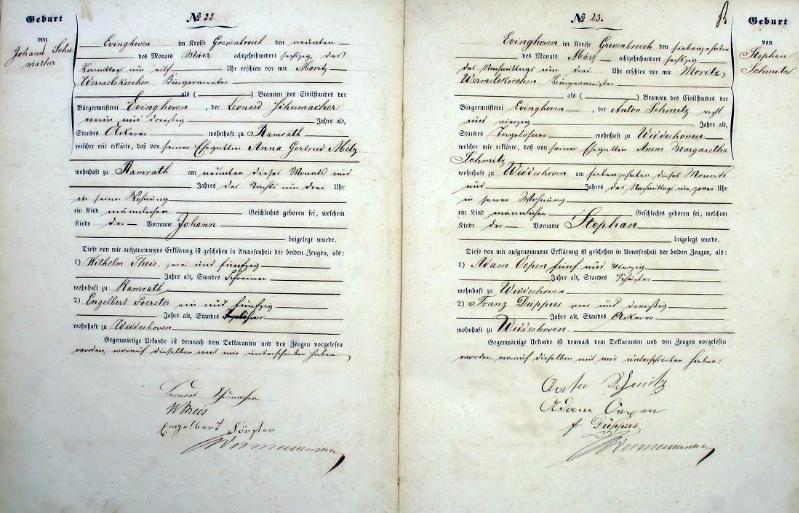 Geburt
von
Johann Schu-
macher
No 22
Evinghoven im Kreise Grevenbroich den neunten
des Monats März achtzehnhundert sechzig des
Vormittags um elf Uhr erschien vor mir Moritz
Wermelskirchen Bürgermeister
als ( ) Beamten des Civilstandes der
Bürgermeisterei Evinghoven, der Leonard Schumacher
neun und dreißig Jahre alt,
Standes Ackerer wohnhaft zu Ramrath
welcher mir erklärte, daß von seiner Ehegattin Anna Gertrud Metz
wohnhaft zu Ramrath am neunten dieses Monats und
Jahres des Nachts um drei Uhr
in seiner Wohnung
ein Kind männlichen Geschlechts geboren sei, welchem
Kinde der Vorname Johann
beigelegt wurde.
Diese von mir aufgenommene Erklärung ist geschehen in Anwesenheit der beiden Zeugen, als:
1) Wilhelm Theis, und fünfzig
Jahre alt, Standes Schreiner
wohnhaft zu Ramrath
2) Engelbert Foerster ein und fünfzig
Jahre alt, Standes
wohnhaft zu Widdeshoven
Gegenwärtige Urkunde ist demnach dem Deklaranten und den Zeugen vorgelesen
worden, worauf dieselben mit mir unterschrieben haben.
W Theis
Engelbert Förster
No 23.
Geburt
von
Stephan
Schmitz
Evinghoven im Kreise Grevenbroich den siebenzehnten
des Monats März achtzehnhundert sechzig
des Nachmittags um drei Uhr erschien vor mir Moritz
Wermelskirchen Bürgermeister
als ( ) Beamten des Civilstandes der
Bürgermeisterei Evinghoven, der Anton Schmitz acht
und vierzig Jahre alt,
Standes Tagelöhner wohnhaft zu Widdeshoven
welcher mir erklärte, daß von seiner Ehegattin Anna Margaretha
Schmitz
wohnhaft zu Widdeshoven am siebenzehnten dieses Monats
und Jahres des Nachmittags um zwei Uhr
in seiner Wohnung
ein Kind männlichen Geschlechts geboren sei, welchem
Kinde der Vorname Stephan
beigelegt wurde.
Diese von mir aufgenommene Erklärung ist geschehen in Anwesenheit der beiden Zeugen, als:
1) Adam Oepen fünf und vierzig
Jahre alt, Standes Schuster
wohnhaft zu Widdeshoven
2) Franz Düppers und dreißig
Jahre alt, Standes Ackerer
wohnhaft zu Widdeshoven.
Gegenwärtige Urkunde ist demnach dem Deklaranten und den Zeugen vorgelesen
worden, worauf dieselben mit mir unterschrieben haben.
Schmitz
Adam Oepen
f. Düppers